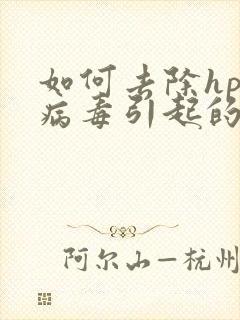 如何去除hp
病毒引起的
阿尔山—杭州